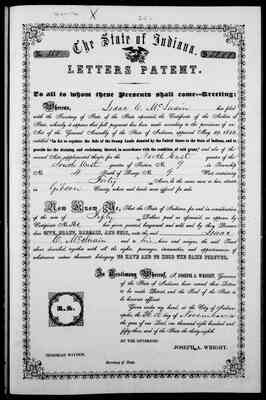 The State of Indiana.
LETTERS PATENT.
To all to whom these Presents shall come—Greeting:
Whereas, Isaac C. McSwain has filed
with the Secretary of State of the State aforesaid, the Certificate of the Auditor of
State, whereby it appears that full payment has been made according to the provisions of an
Act of the General Assembly of the State of Indiana, approved May
entitled "An Act to regulate the Sale of the Swamp Lands donated by the United States to the State of Indiana, and to
provide for the draining and reclaiming thereof, in accordance with the condition of said grant," and also of the
several Acts supplemental thereto for the North West quarter of the
South West quarter of Section No. in Township
No. 4 South of Range No. 9 West containing
Forty Acres, be the same more or less, situate in
Gibson County, where said lands were offered for sale.
Now Know Ye, That the State of Indiana, for and in consideration
of the sum of Fifty Dollars paid as aforesaid, as appears by
Certificate No. has given, granted, bargained and sold, and by these Presents
does GIVE, GRANT, BARGAIN, AND SELL, unto the said Isaac
C. McSwain and to his heirs and assigns, the said Tract
above described, together with all the rights, privileges, immunities, and appurtenances of
whatsoever nature thereunto belonging, TO HAVE AND TO HOLD THE SAME FOREVER.
In Testimony Whereof, I, JOSEPH A. WRIGHT, Governor
of the State of Indiana have caused these Letters
to be made Patent, and the Seal of the State to
be hereunto affixed.
Given under my hand, at the City of Indian-
apolis, the day of November in
the year of our Lord, one thousand eight hundred and
fifty- and of the State the thirty-
BY THE GOVERNOR
JOSEPH A. WRIGHT.
Secretary of State.